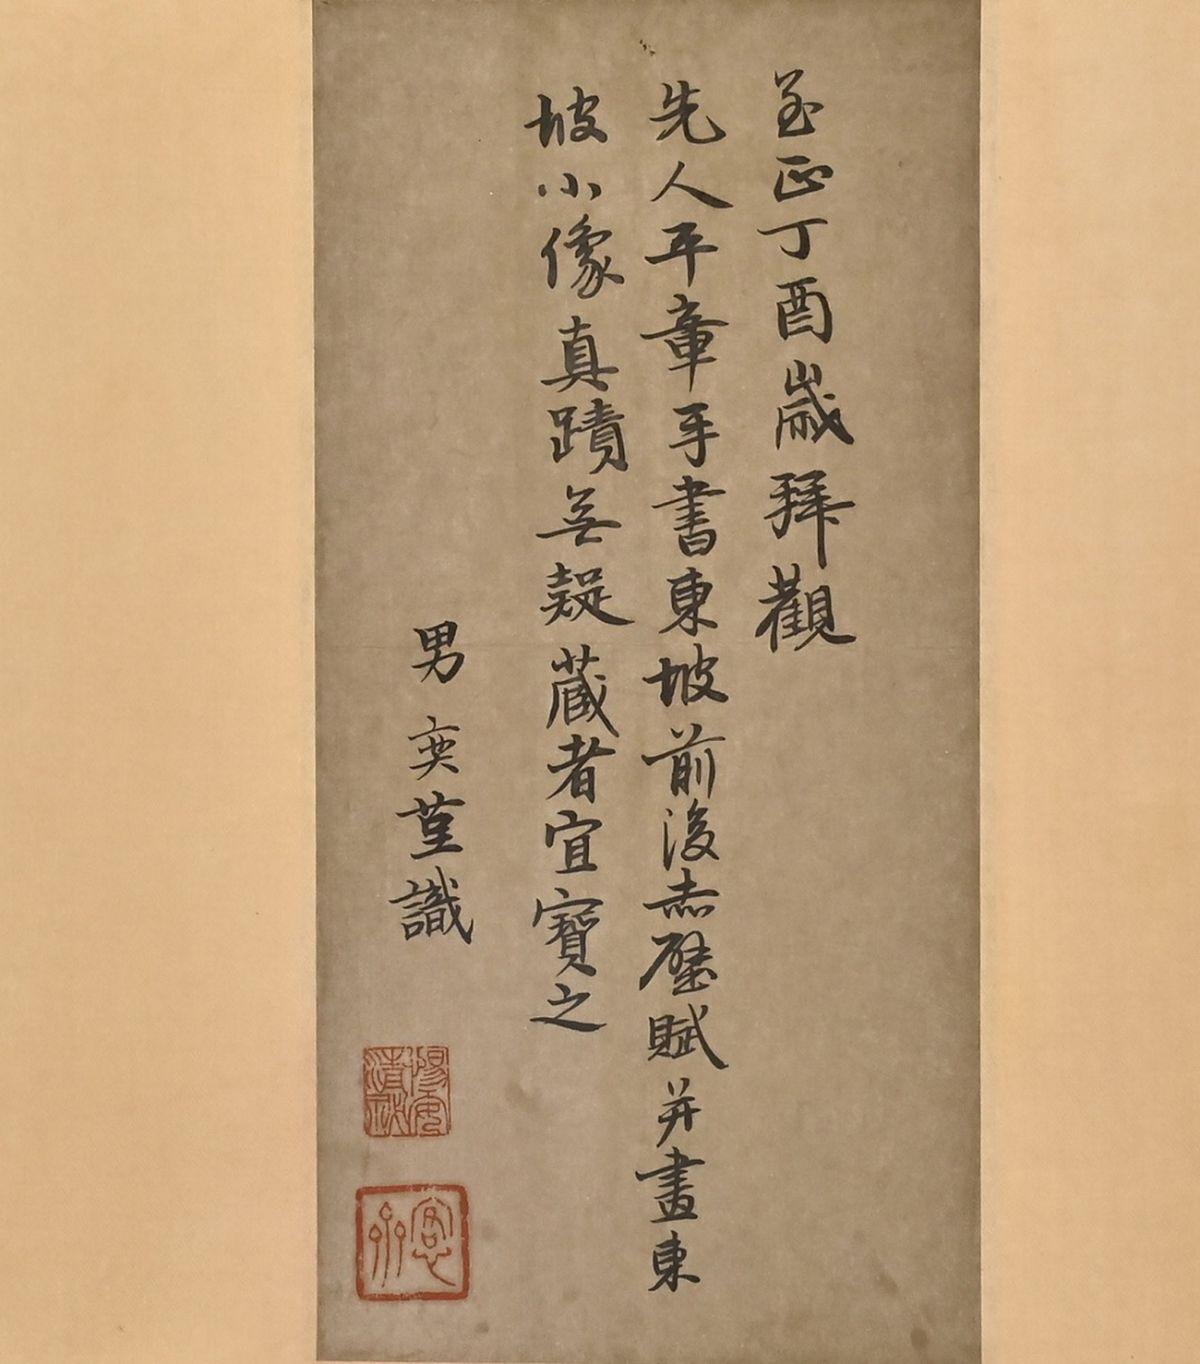 至正丁酉歲拜觀
先人平章手書東坡前後赤壁賦并畫東
坡小像真蹟無疑藏者宜寶之
男奕堇識